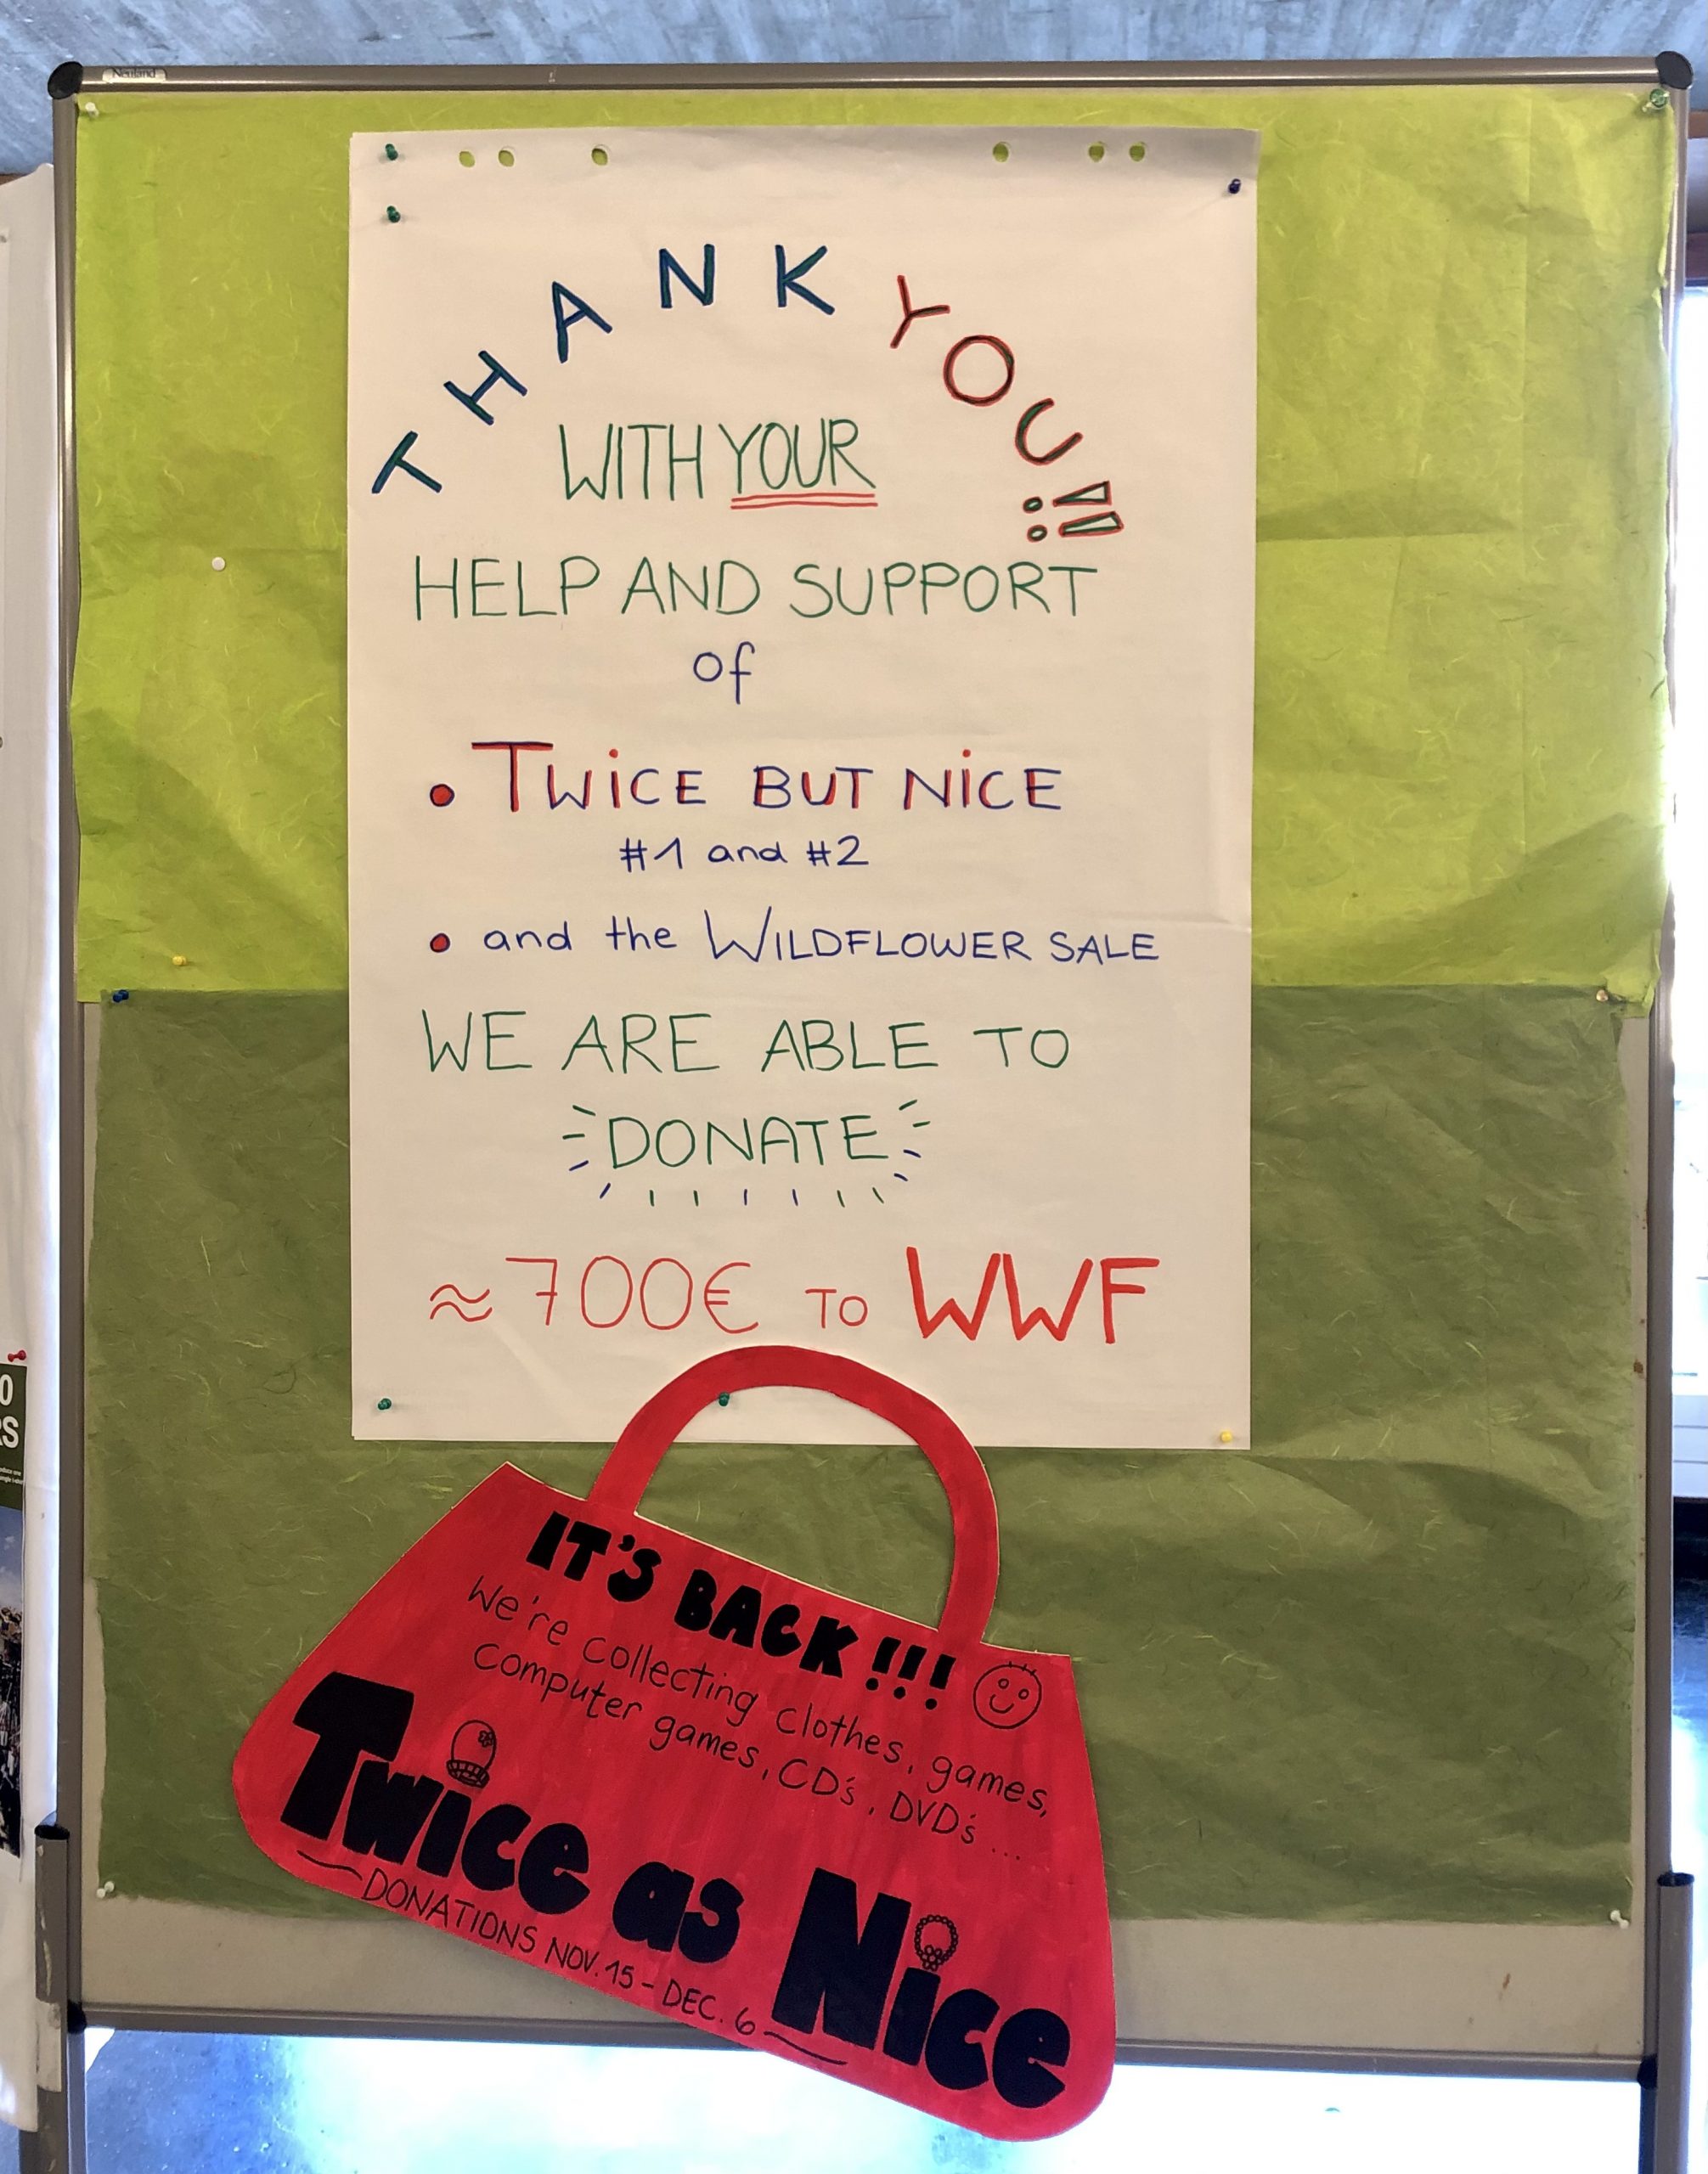 Neuland
THANK YOU!!
WITH YOUR
HELP AND SUPPORT
of
• TWiCE BUT NiCE
#1 and #2
• and the WILDFLOWER SALE
WE ARE ABLE TO
DONATE
≈700€ TO WWF
IT'S BACK!!!
We're collecting clothes, games,
Computer games, CD's, DVD's...
Twice as Nice
DONATIONS NOV. 15 - DEC. 6
0
RS